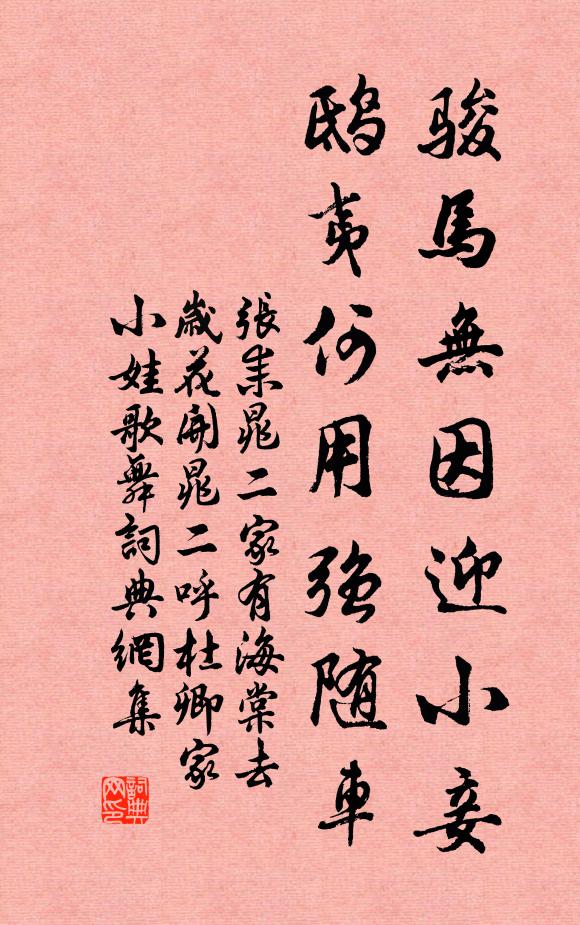 骏馬無因迎小妾
鸱夷何用强随車
張耒晁二家有海棠去
歲花開晁二呼杜卿家
小娃歌舞詞典網集
詞典网印